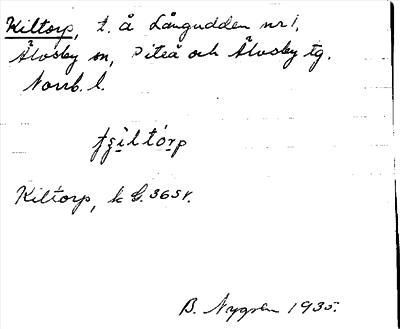 Kiltorp, t. å Långudden nr 1,
Älvsby sn, Piteå och Älvsby tg.
Norrb. l.
Kiltorp, k G. 365r.
B. Nygren 1935.